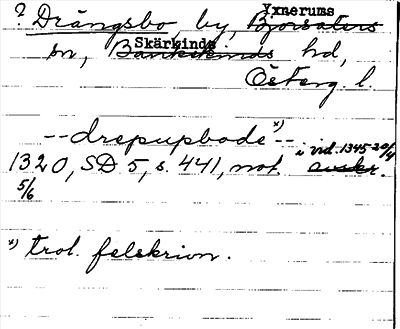 ? Drängsbo, by, Yxnerums Björsäters
sn, Skärkinds Bankekinds hd,
Österg. l.
--drepupbode x) --
1320, SD 5, s. 441, not. i vid. 1345 20/4 avskr.
5/6
x) trol. felskrivn.